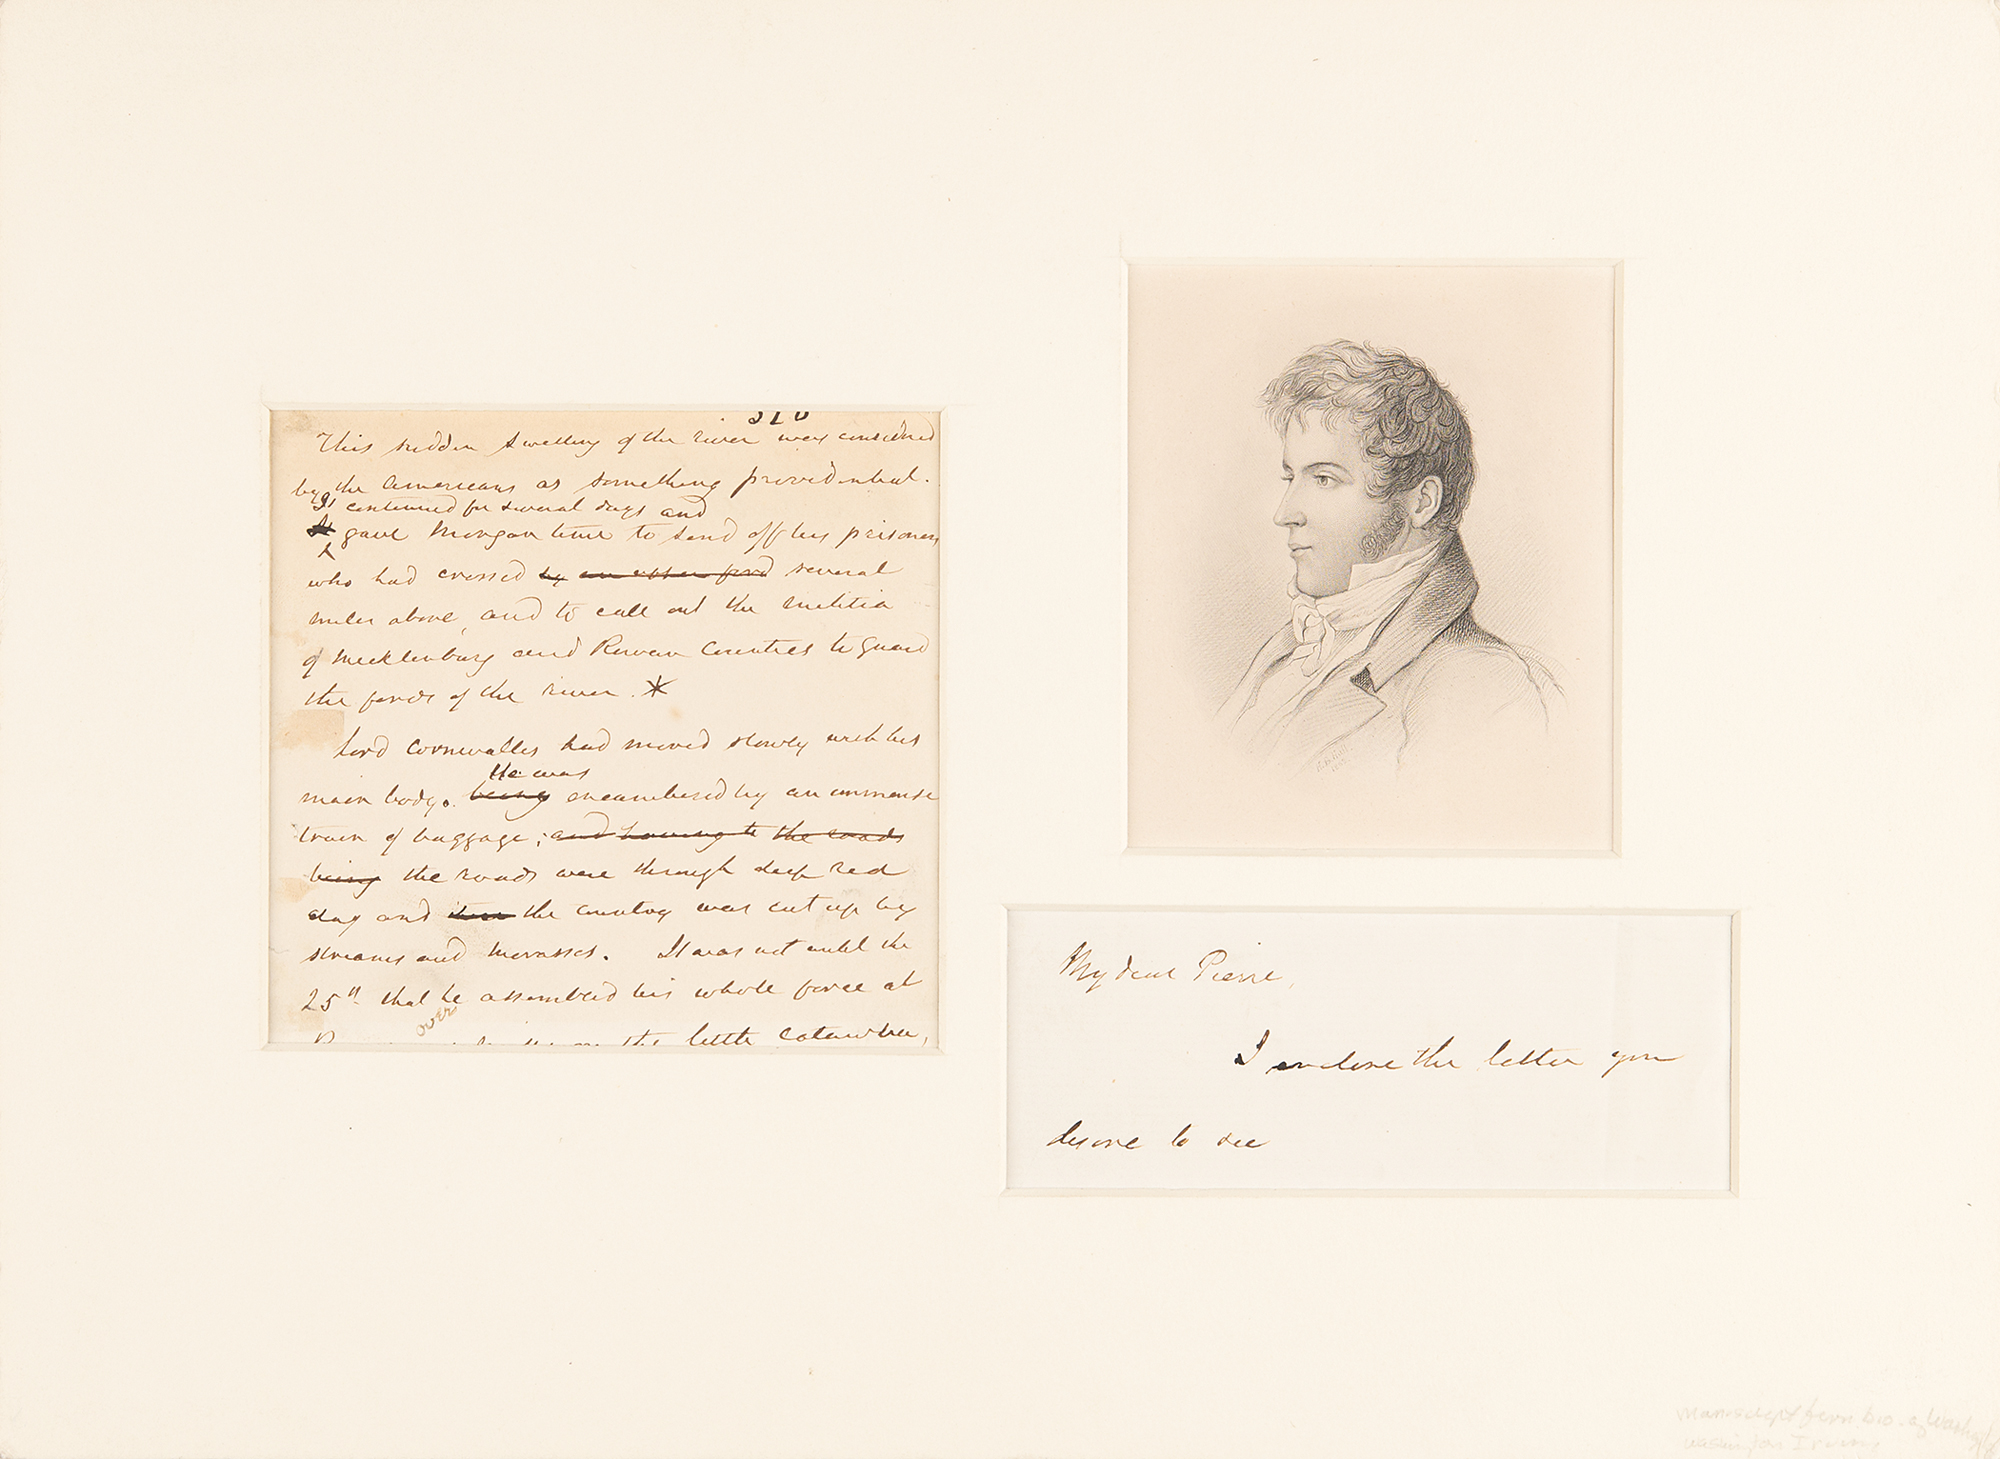 This sudden swelling of the river was considered
by the Americans as something providential.
It continued for several days and
gave Morgan time to send off his prisoners
who had crossed by an upper ford several
miles above, and to call out the militia
of Mecklenburg and Rowan Counties to guard
the fords of the river. *
Lord Cornwallis had moved slowly with his
He was
main body. being encumbered by an immense
train of baggage; and having to the roads
being the roads were through deep red
clay and the country was cut up by
streams and morasses. It was not until the
25th that he assembled his whole force at
over
the little Catawba,
My dear Pierre,
I enclose the letter you
desire to see
Manuscript from bio. of Washg
Washington Irving